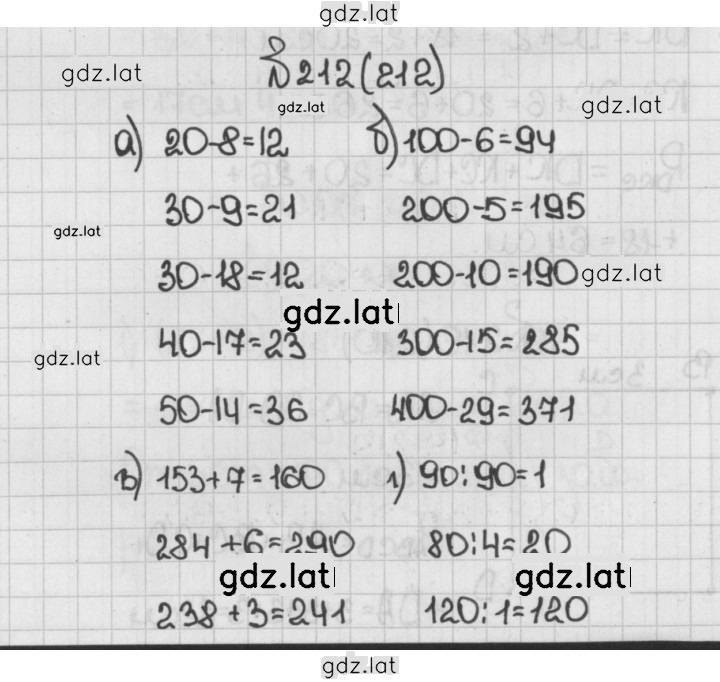 gdz.lat
№212(212)
gdz.lat
gdz.lat
gdz.lat
а) 20-8=12 б) 100-6=94
30-9=21 200-5=195
gdz.lat
30-18=12 200-10=190 gdz.lat
gdz.lat
40-17=23 300-15=285
gdz.lat
50-14=36 400-29=371
в) 153+7=160 г) 90:90=1
284+6=290 80:4=20
gdz.lat gdz.lat
238+3=241 120:1=120
gdz.lat